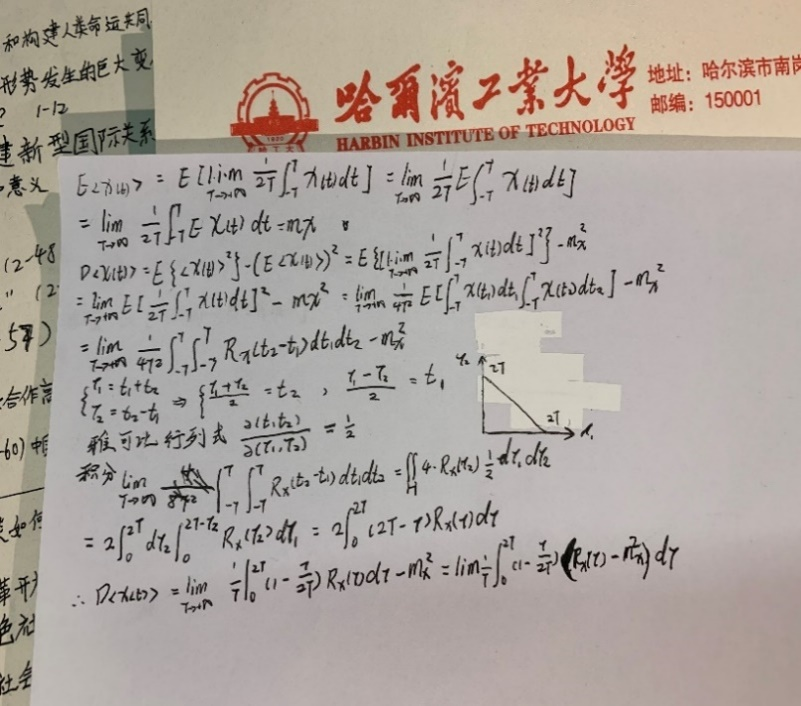 和构建人类命运共同
形势发生的巨大变
1-12
建新型国际关系
意义
(2-48
(2
合作言
-60) 中
如何
革开
色社
社会
哈爾濱工業大學
HARBIN INSTITUTE OF TECHNOLOGY
1920
地址：哈尔滨市南岗
邮编：150001
E<x(t)> = E[l.i.m_{T→∞} 1/2T ∫_{-T}^{T} x(t)dt] = lim_{T→∞} 1/2T E∫_{-T}^{T} x(t)dt]
= lim_{T→∞} 1/2T ∫_{-T}^{T} E x(t) dt = mx
D<x(t)> = E{<x(t)>²} - (E<x(t)>)² = E{[l.i.m_{T→∞} 1/2T ∫_{-T}^{T} x(t)dt]²} - m_x²
= lim_{T→∞} E[1/2T ∫_{-T}^{T} x(t)dt]² - mx² = lim_{T→∞} 1/4T² E[∫_{-T}^{T} x(t₁)dt₁ ∫_{-T}^{T} x(t₂)dt₂] - m_x²
= lim_{T→∞} 1/4T² ∫_{-T}^{T} ∫_{-T}^{T} R_x(t₂-t₁)dt₁dt₂ - m_x²
{τ₁ = t₁+t₂
τ₂ = t₂-t₁ ⇒ {(τ₁+τ₂)/2 = t₂ , (τ₁-τ₂)/2 = t₁
τ₂ 2T
2T τ₁
雅可比行列式 ∂(t₁t₂)/∂(τ₁,τ₂) = 1/2
积分 lim_{T→∞} ∫_{-T}^{T} ∫_{-T}^{T} R_x(t₂-t₁)dt₁dt₂ = ∬ 4·R_x(τ₂) 1/2 dτ₁dτ₂
= 2∫_0^{2T} dτ₂ ∫_0^{2T-τ₂} R_x(τ₂)dτ₁ = 2∫_0^{2T} (2T-τ)R_x(τ)dτ
∴ D<x(t)> = lim_{T→∞} 1/T ∫_0^{2T} (1 - τ/2T) R_x(τ)dτ - m_x² = lim 1/T ∫_0^{2T} (1 - τ/2T) (R_x(τ) - m_x²) dτ